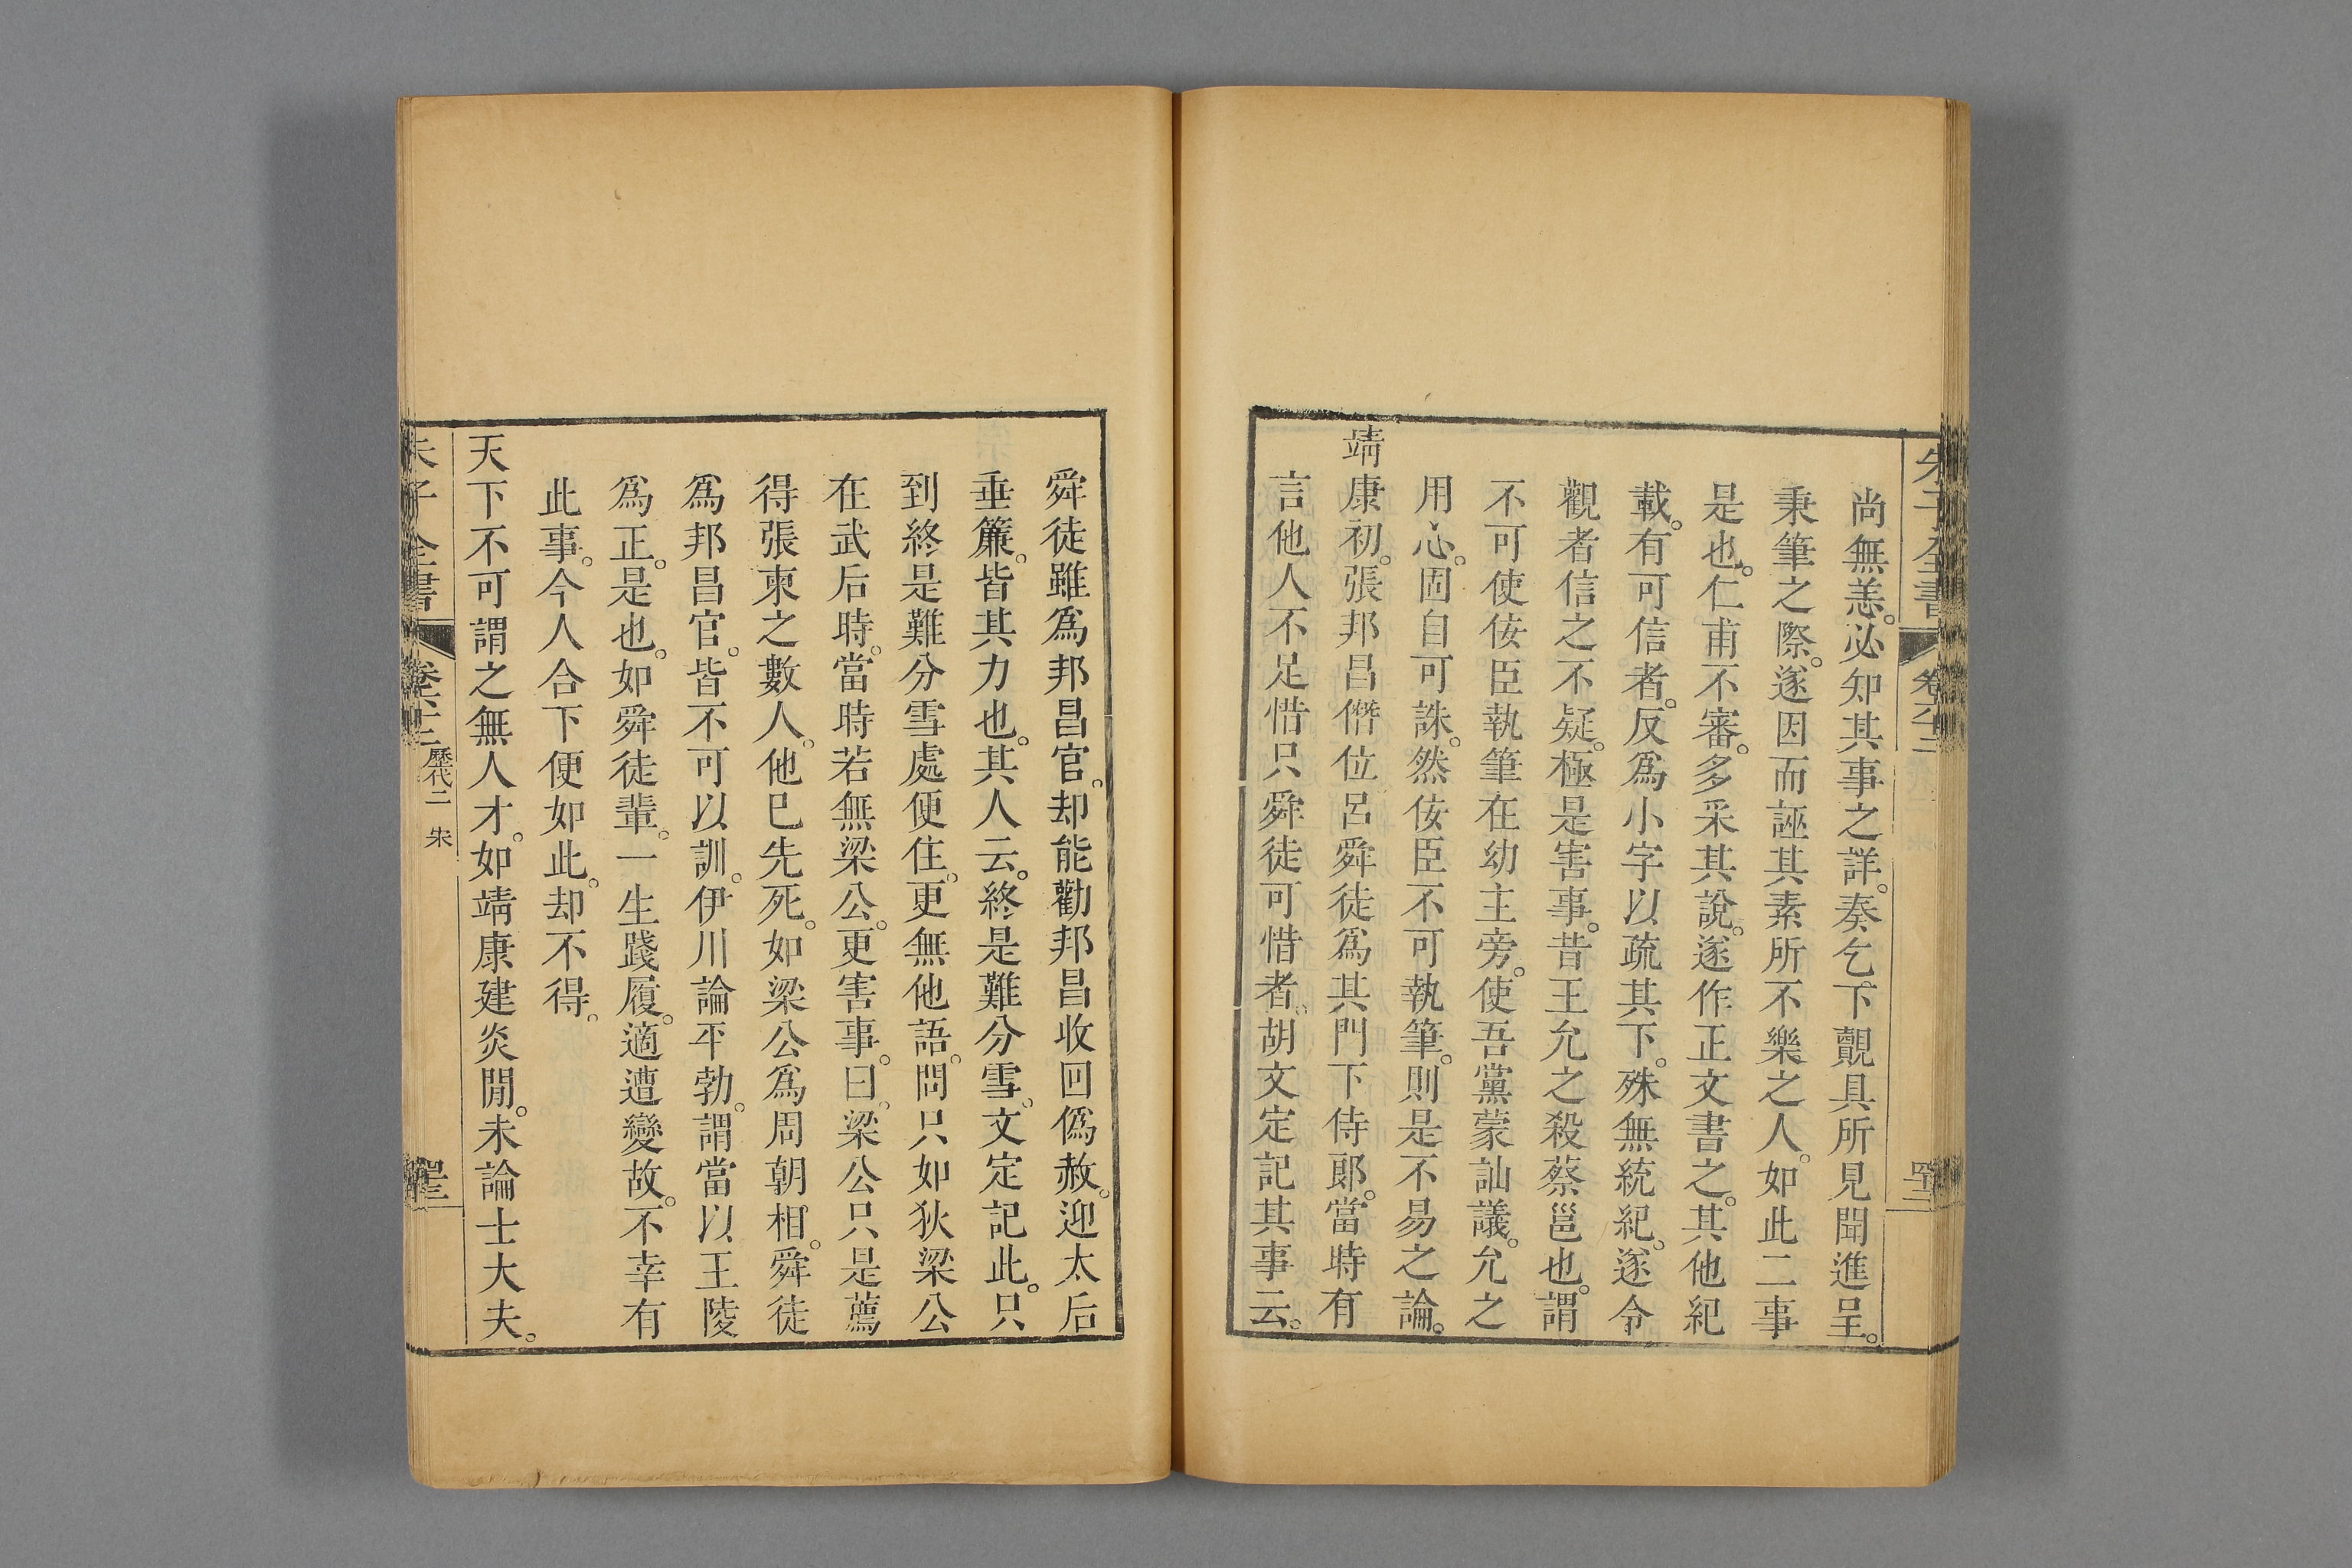 朱子全書 卷六十二
尚無恙。必知其事之詳。奏乞下覿具所見聞進呈。
秉筆之際。遂因而誣其素所不樂之人。如此二事
是也。仁甫不審。多采其說。遂作正文書之。其他紀
載。有可信者。反爲小字以疏其下。殊無統紀。遂令
觀者信之不疑。極是害事。昔王允之殺蔡邕也。謂
不可使佞臣執筆在幼主旁。使吾黨蒙訕議。允之
用心。固自可誅。然佞臣不可執筆。則是不易之論。
靖康初。張邦昌僭位。呂舜徒爲其門下侍郞。當時有
言他人不足惜。只舜徒可惜者。胡文定記其事云。
舜徒雖爲邦昌官。却能勸邦昌收回僞赦。迎太后
垂簾。皆其力也。其人云。終是難分雪。文定記此。只
到終是難分雪處便住。更無他語。問只如狄梁公
在武后時。當時若無梁公。更害事。曰。梁公只是薦
得張柬之數人。他已先死。如梁公爲周朝相。舜徒
爲邦昌官。皆不可以訓。伊川論平勃。謂當以王陵
爲正。是也。如舜徒輩。一生踐履。適遭變故。不幸有
此事。今人合下便如此。却不得。
天下不可謂之無人才。如靖康建炎閒。未論士大夫。
朱子全書 卷六十二 歷代二 宋